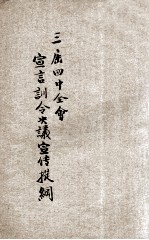 三屆四中全會
宣言訓令决議宣传提綱